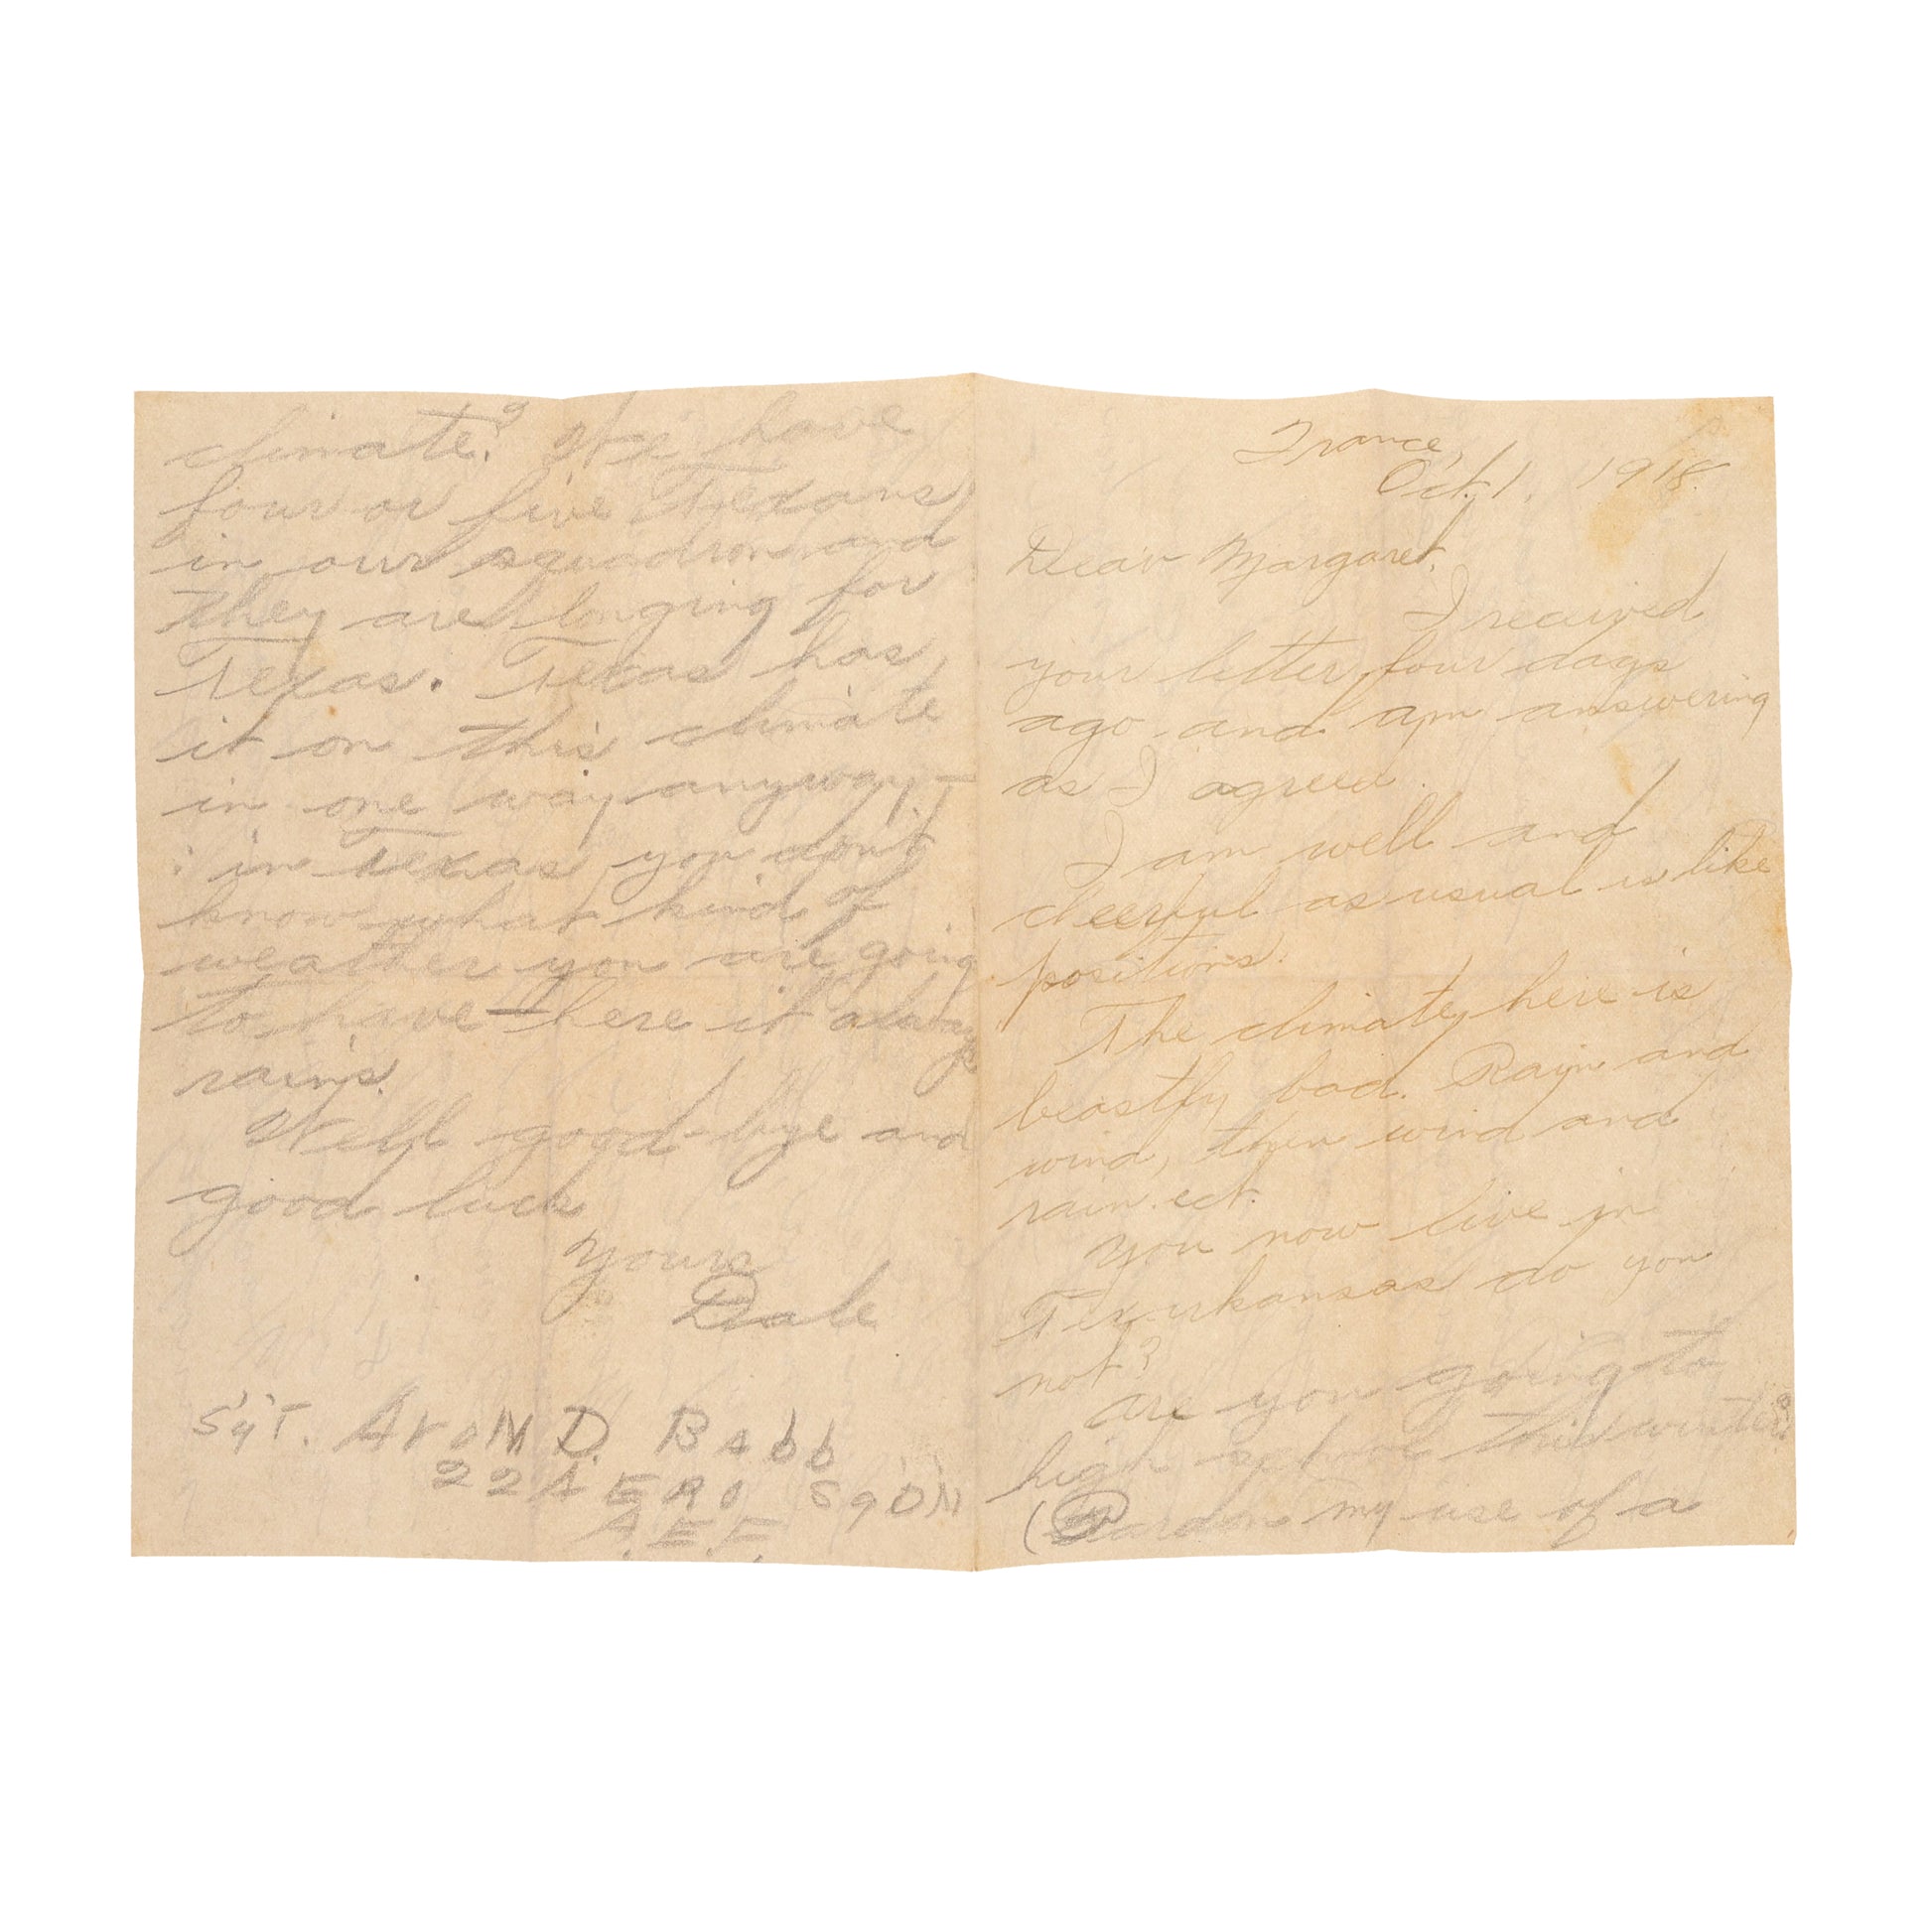 France,
Oct. 1, 1918.
Dear Margaret,
I recieved
your letter four days
ago and am answering
as I agreed.
I am well and
cheerful as usual in like
positions.
The climate here is
beastly bad. Rain and
wind, then wind and
rain ect.
You now live in
Texarkansas do you
not?
Are you going to
high school this winter?
(Pardon my use of a
climate? We have
four or five Texans
in our squadron and
they are longing for
Texas. Texas has
it on this climate
in one way anyway,—
: in Texas you don't
know what kind of
weather you are going
to have—here it always
rains.
Well good-bye and
good luck
Yours
Dale
Sg't. AroN D. Babb
22 AERO Sq'D'N
A.E.F.